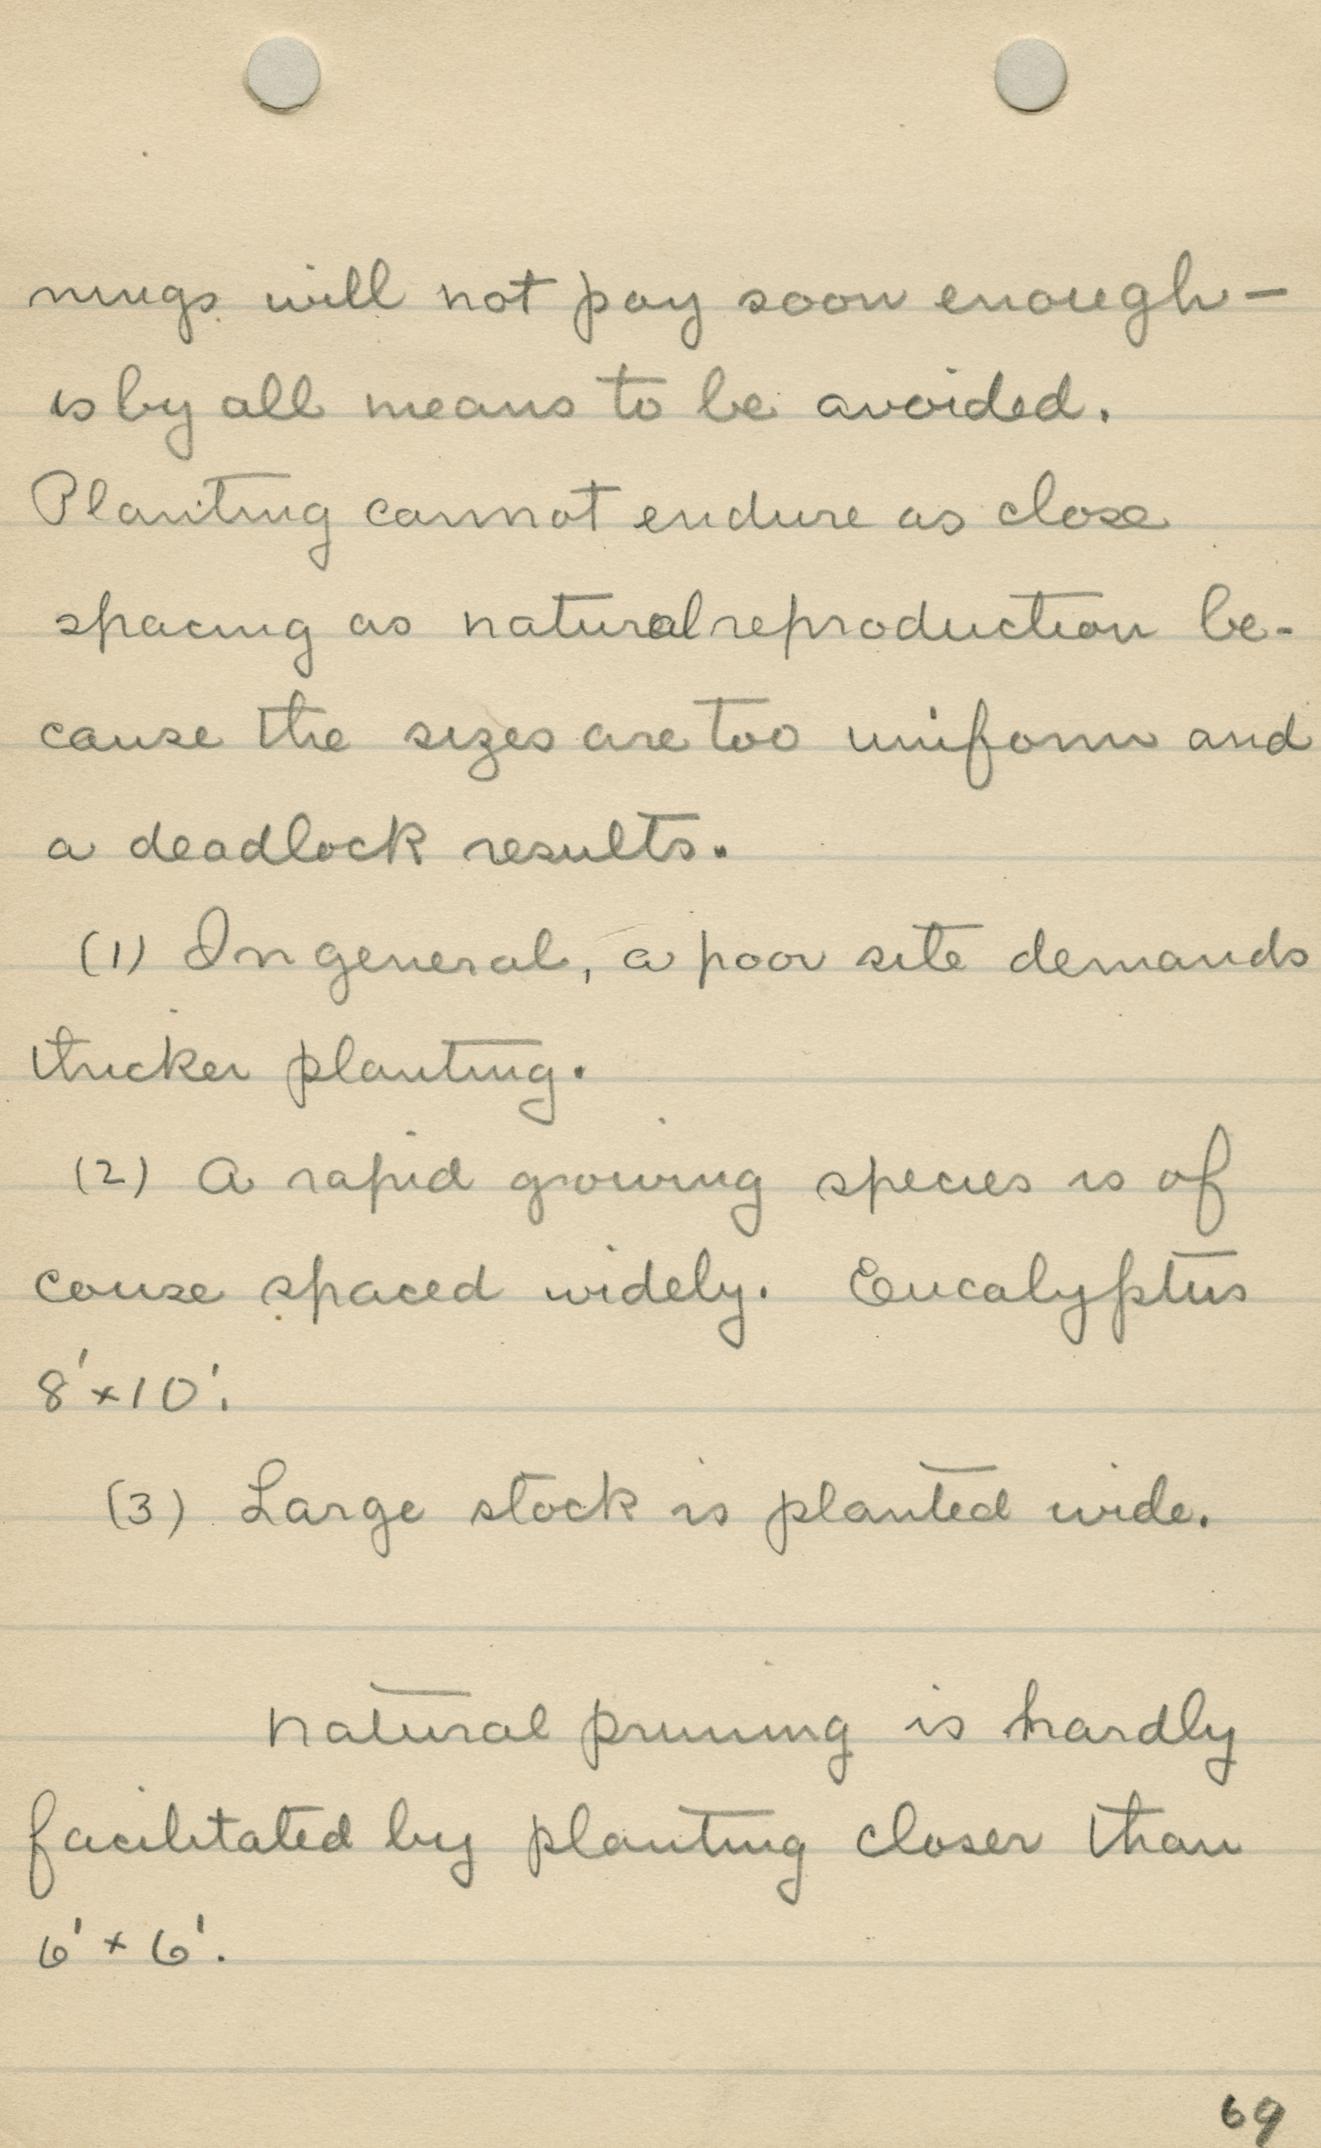 nings will not pay soon enough —
is by all means to be avoided.
Planting cannot endure as close
spacing as natural reproduction be-
cause the sizes are too uniform and
a deadlock results.
(1) In general, a poor site demands
thicker planting.
(2) A rapid growing species is of
couse spaced widely. Eucalyptus
8' x 10'.
(3) Large stock is planted wide.
Natural pruning is hardly
facilitated by planting closer than
6' x 6'.
69